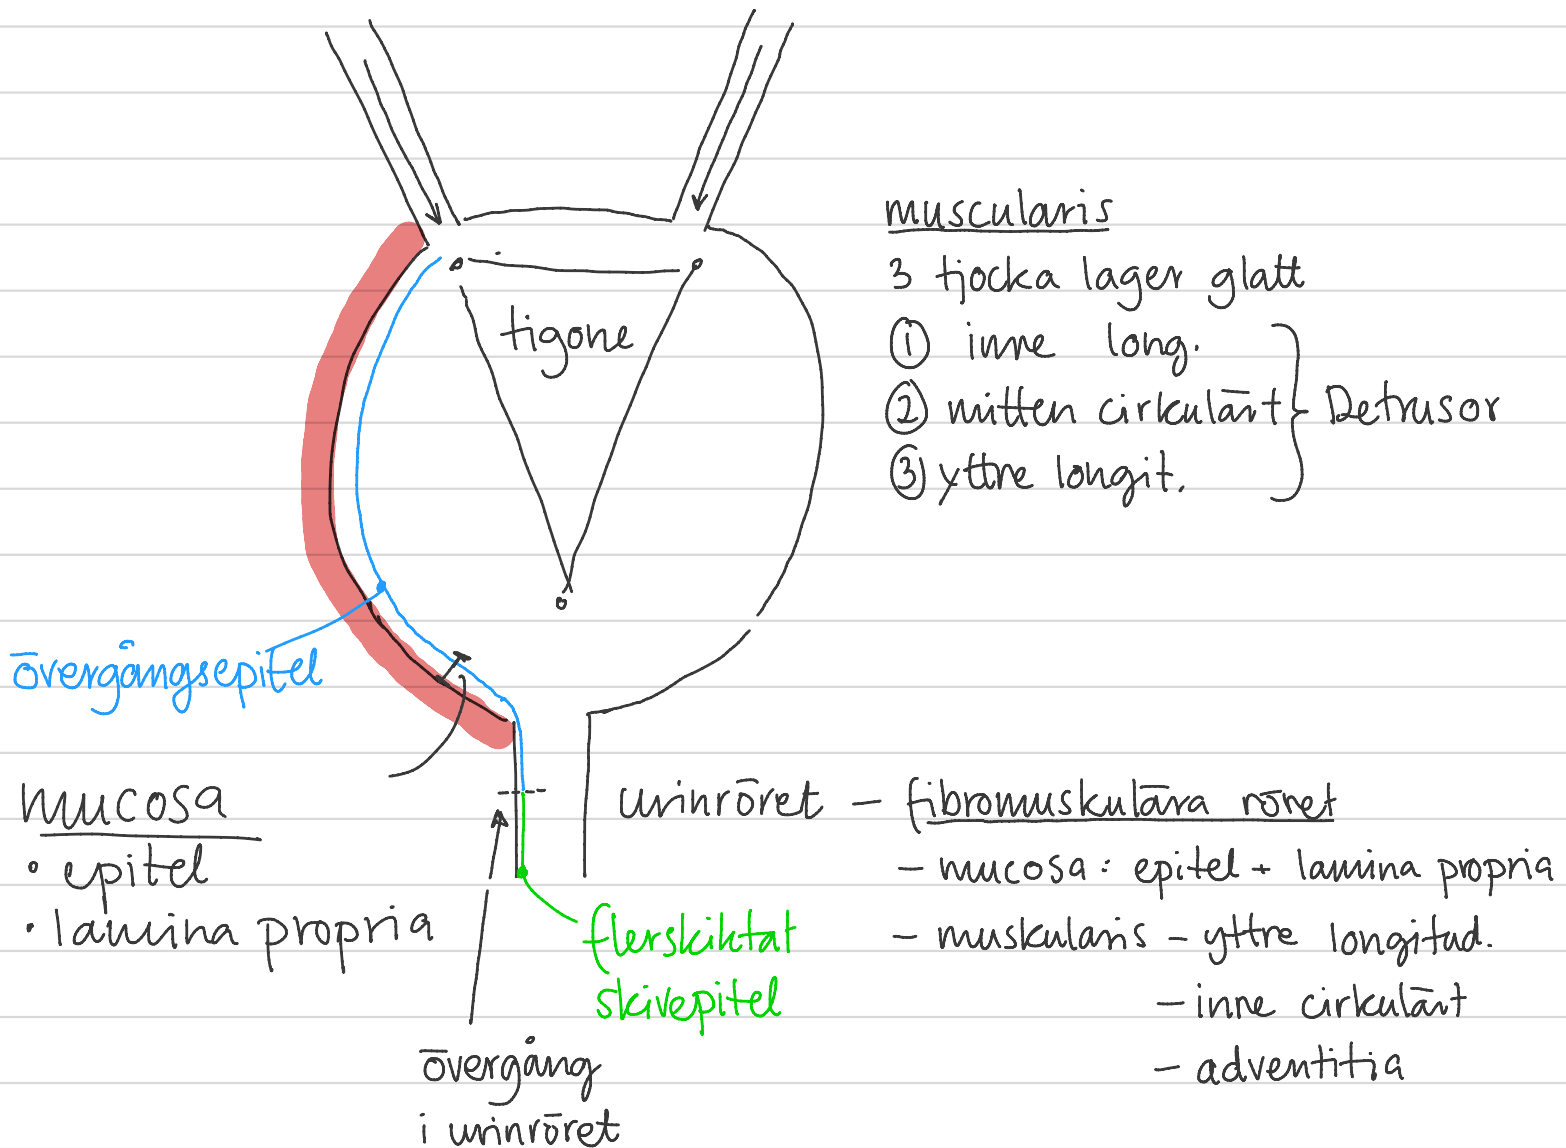 muscularis
3 tjocka lager glatt
tigone
① inne long.
② mitten cirkulärt
③ yttre longit.
Detrusor
övergångsepitel
mucosa
• epitel
• lamina propria
urinröret – fibromuskulära röret
– mucosa: epitel + lamina propria
– muskularis – yttre longitud.
– inne cirkulärt
– adventitia
flerskiktat
skivepitel
övergång
i urinröret